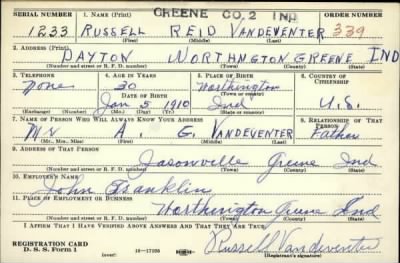 GREENE CO. 2 IND
SERIAL NUMBER 1. NAME (Print) ORDER NUMBER
1233 RUSSELL REID VANDEVENTER 339
(First) (Middle) (Last)
2. ADDRESS (Print)
DAYTON WORTHNGTON GREENE IND
(Number and street or R. F. D. number) (Town) (County) (State)
3. TELEPHONE 4. AGE IN YEARS 5. PLACE OF BIRTH 6. COUNTRY OF CITIZENSHIP
None 30 Worthington
DATE OF BIRTH (Town or county)
Jan 5 1910 Ind U.S.
(Exchange) (Number) (Mo.) (Day) (Yr.) (State or country)
7. NAME OF PERSON WHO WILL ALWAYS KNOW YOUR ADDRESS 8. RELATIONSHIP OF THAT PERSON
Mr A. G. VANDEVENTER Father
(Mr., Mrs., Miss) (First) (Middle) (Last)
9. ADDRESS OF THAT PERSON
Jasonville Greene Ind
(Number and street or R. F. D. number) (Town) (County) (State)
10. EMPLOYER'S NAME
John Franklin
11. PLACE OF EMPLOYMENT OR BUSINESS
Worthington Greene Ind
(Number and street or R. F. D. number) (Town) (County) (State)
I AFFIRM THAT I HAVE VERIFIED ABOVE ANSWERS AND THAT THEY ARE TRUE.
REGISTRATION CARD
D. S. S. Form 1 (over) 16-17105 Russell Vandeventer
(Registrant's signature)